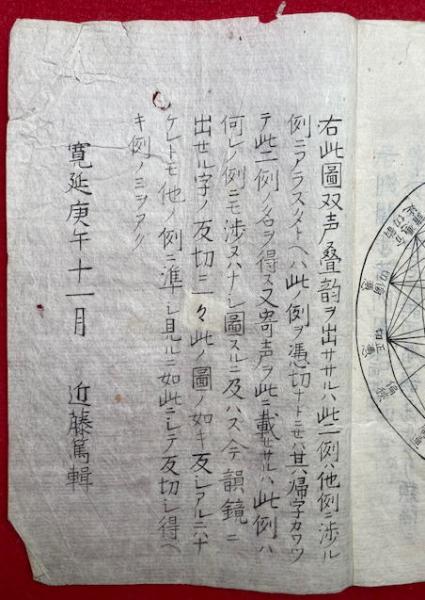 右此圖双声疊韵ヲ出ササルハ此二例ハ他例ニ渉ル
例ニアラスタトヘハ此ノ例ヲ憑切ナトニセハ其帰字カワツ
テ此二例ノ名ヲ得ス又寄声ヲ此ニ載セサルハ此例ハ
何レノ例ニモ渉ヌハナシ圖スルニ及ハス今韻鏡ニ
出セル字ノ反切ニ一々此ノ圖ノ如キ反シアルニハナ
ケレトモ他ノ例ニ準シ見ルニ如此ニシテ反切シ得ヘ
キ例ノミヲアク
寛延庚午十一月 近藤篤輯